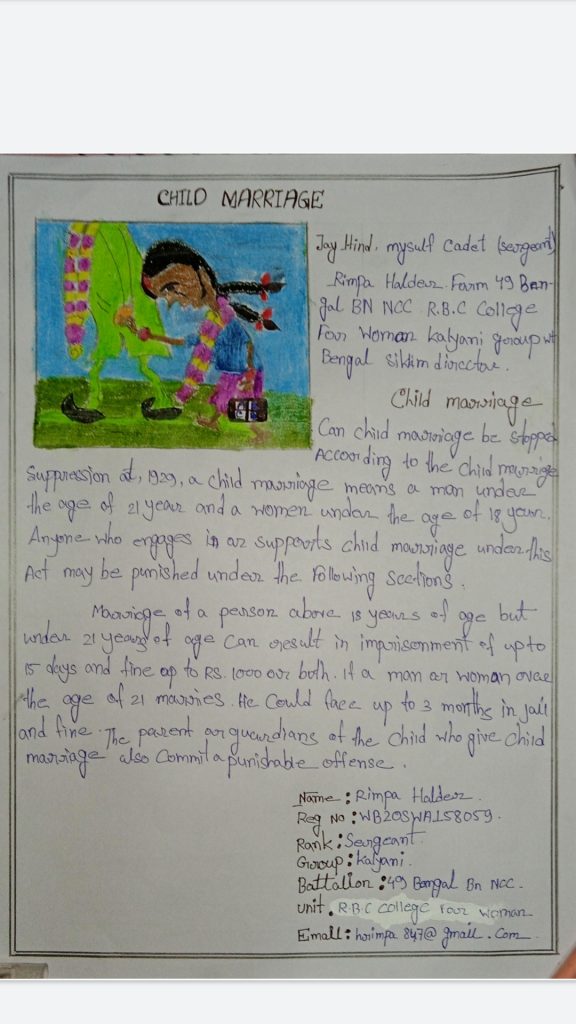 CHILD MARRIAGE
Jay Hind, myself Cadet (sergeant)
Rimpa Halder. Farm 49 Ben-
gal BN NCC R.B.C College
For Woman Kalyani group wt
Bengal Sikkim director.
Child marriage
Can child marriage be stopped
According to the child marriage
Suppression at, 1929, a child marriage means a man under
the age of 21 year and a women under the age of 18 years.
Anyone who engages in or supports child marriage under this
Act may be punished under the following sections.
Marriage of a person above 18 years of age but
under 21 years of age can result in imprisonment of up to
15 days and fine up to RS. 1000 or both. If a man or woman over
the age of 21 marries. He Could face up to 3 months in jail
and fine. The parent or guardians of the child who give child
marriage also Commit a punishable offense.
Name : Rimpa Halder.
Reg No : WB20SWA158059.
Rank : Sergeant.
Group : Kalyani.
Battalion : 49 Bengal Bn NCC.
unit. R.B.C College For Woman
Email : hrimpa847@gmail.com